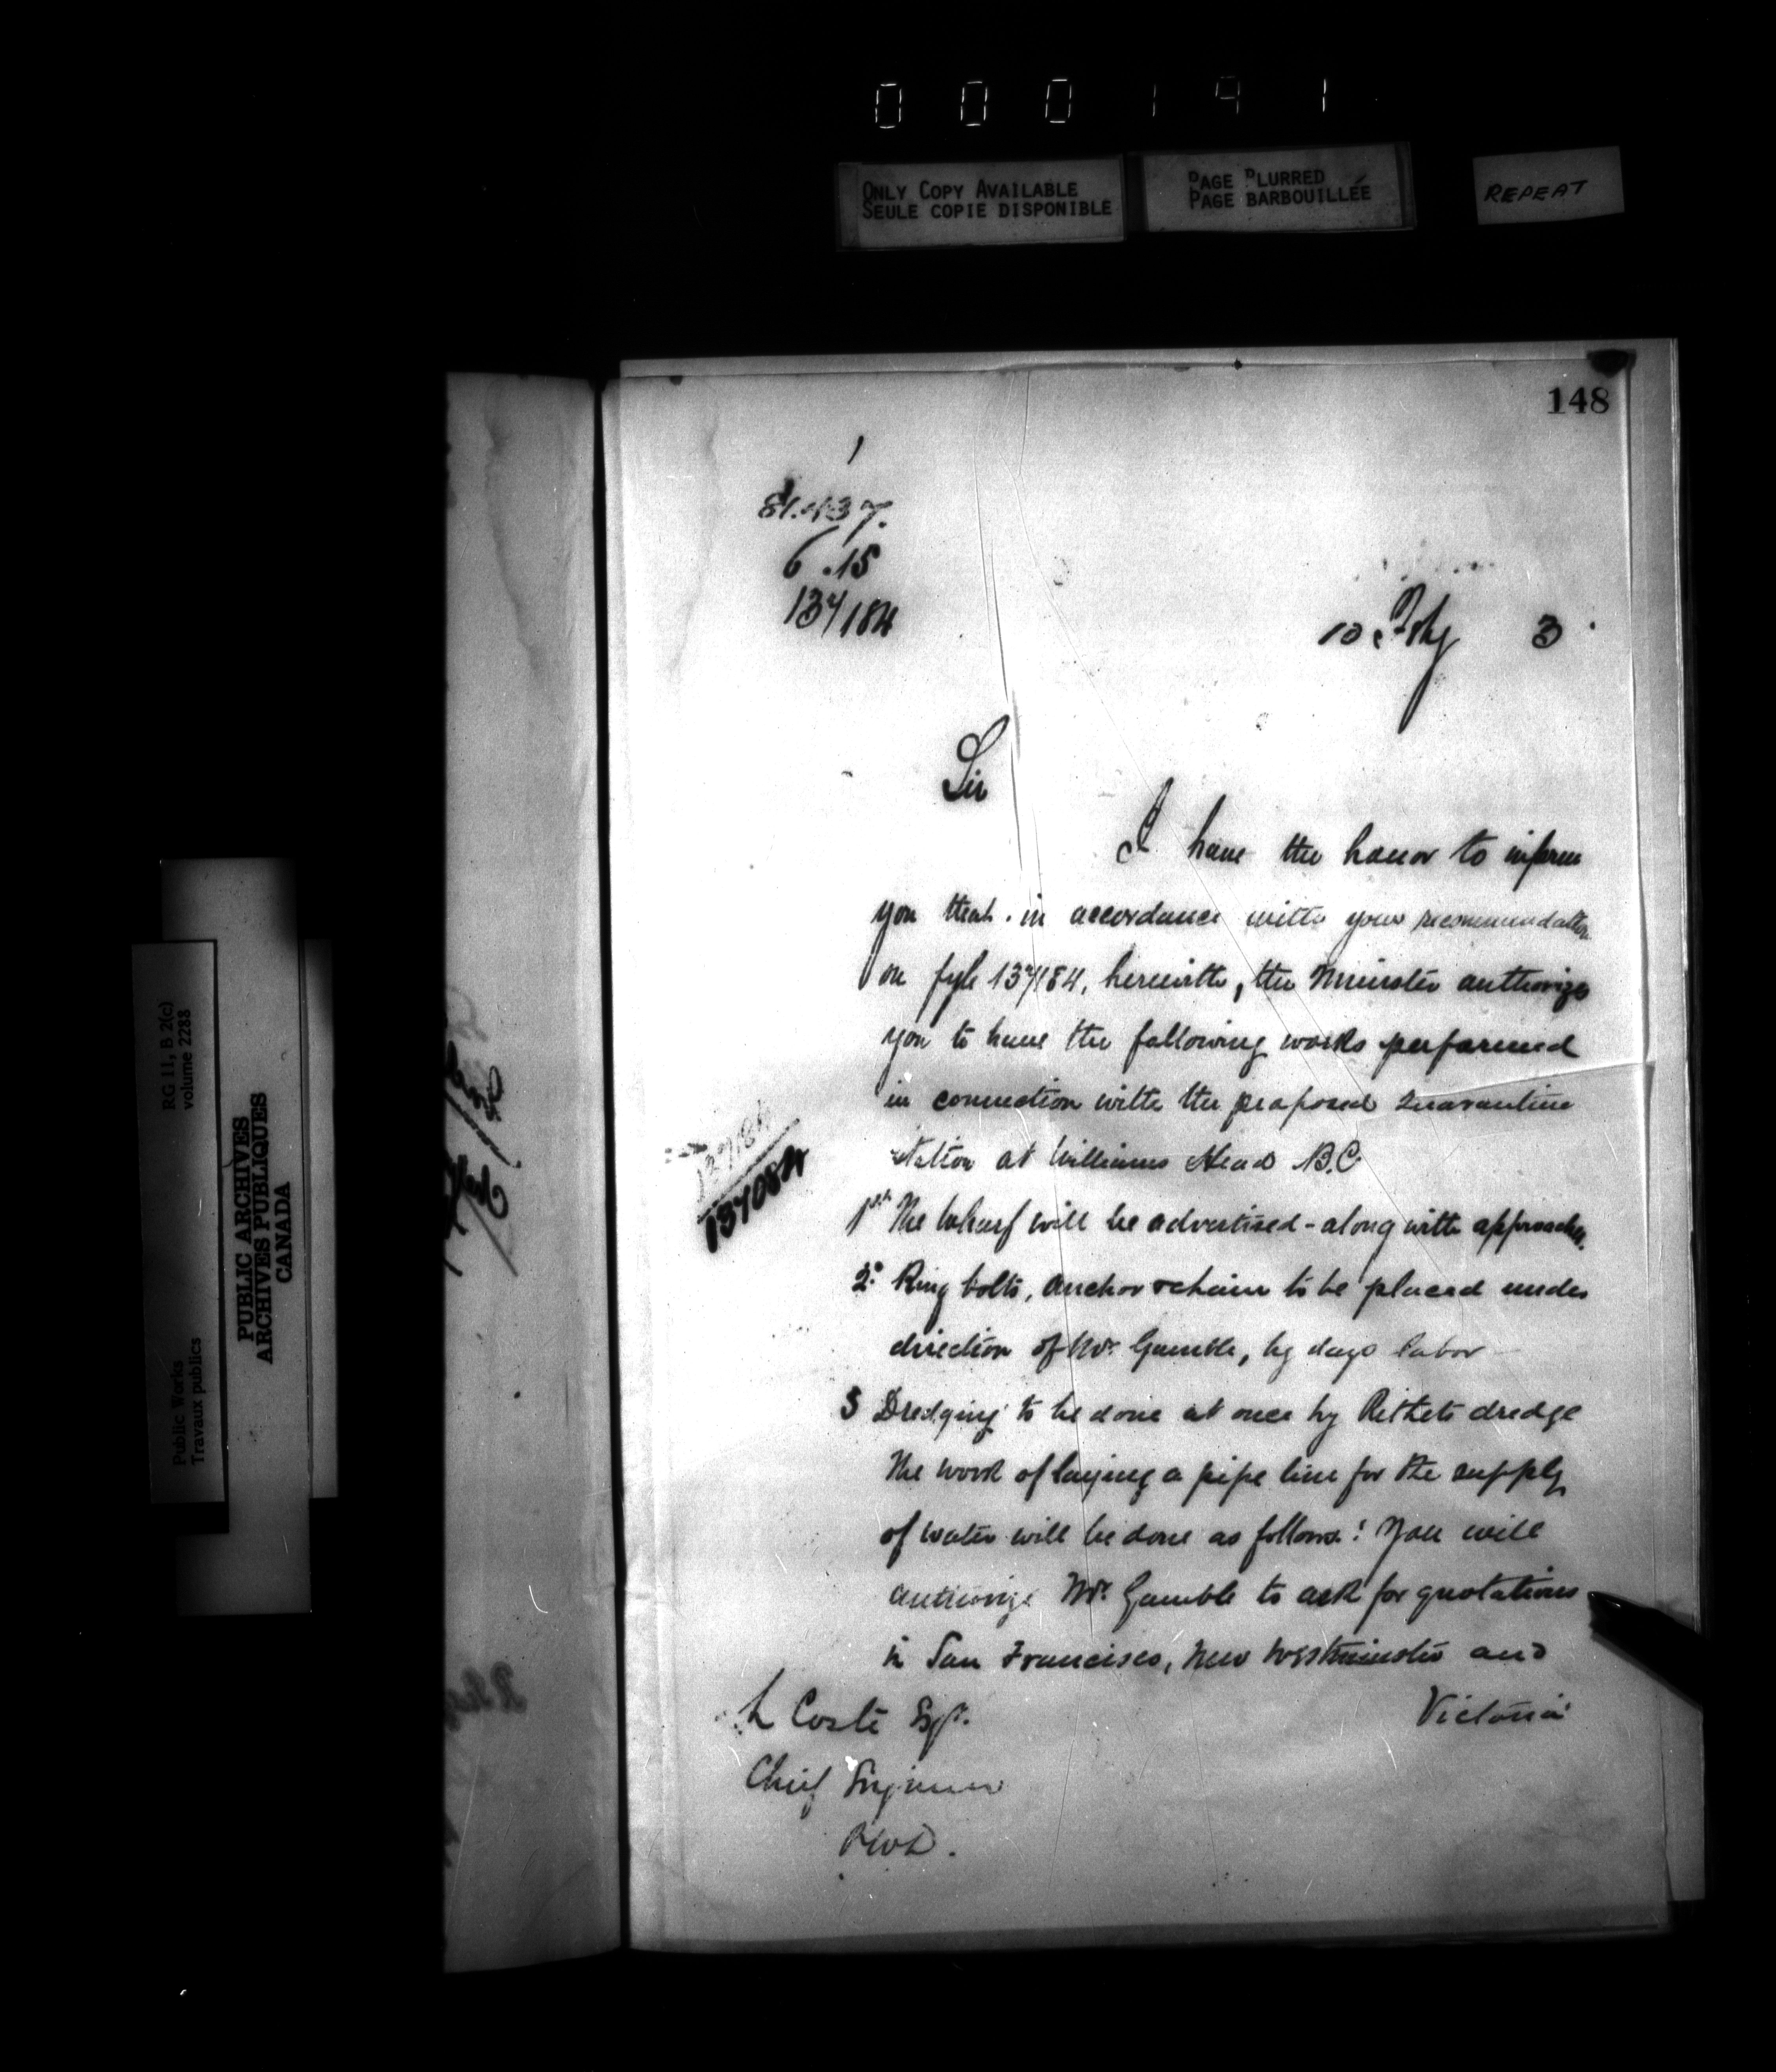 000191
ONLY COPY AVAILABLE
SEULE COPIE DISPONIBLE
PAGE BLURRED
PAGE BARBOUILLÉE
REPEAT
148
1
6.15
137184
10 Feby 3
Sir
I have the honor to inform
you that in accordance with your recommendation
on fyle 137184, herewith, the Minister authorizes
you to have the following works performed
in connection with the proposed Quarantine
Station at Williams Head B.C
137184
137084
1st The Wharf will be advertised - along with approaches.
2o Ring bolts, anchor & chain to be placed under
direction of Mr. Gamble, by days labor
3 Dredging to be done at once by Rithets dredge
The work of laying a pipe line for the supply
of water will be done as follows: You will
authorize Mr. Gamble to ask for quotations
in San Francisco, New Westminster and
Victoria
L Coste Esqr.
Chief Engineer
P.W.D.
RG 11, B 2(c)
volume 2288
Public Works
Travaux publics
PUBLIC ARCHIVES
ARCHIVES PUBLIQUES
CANADA